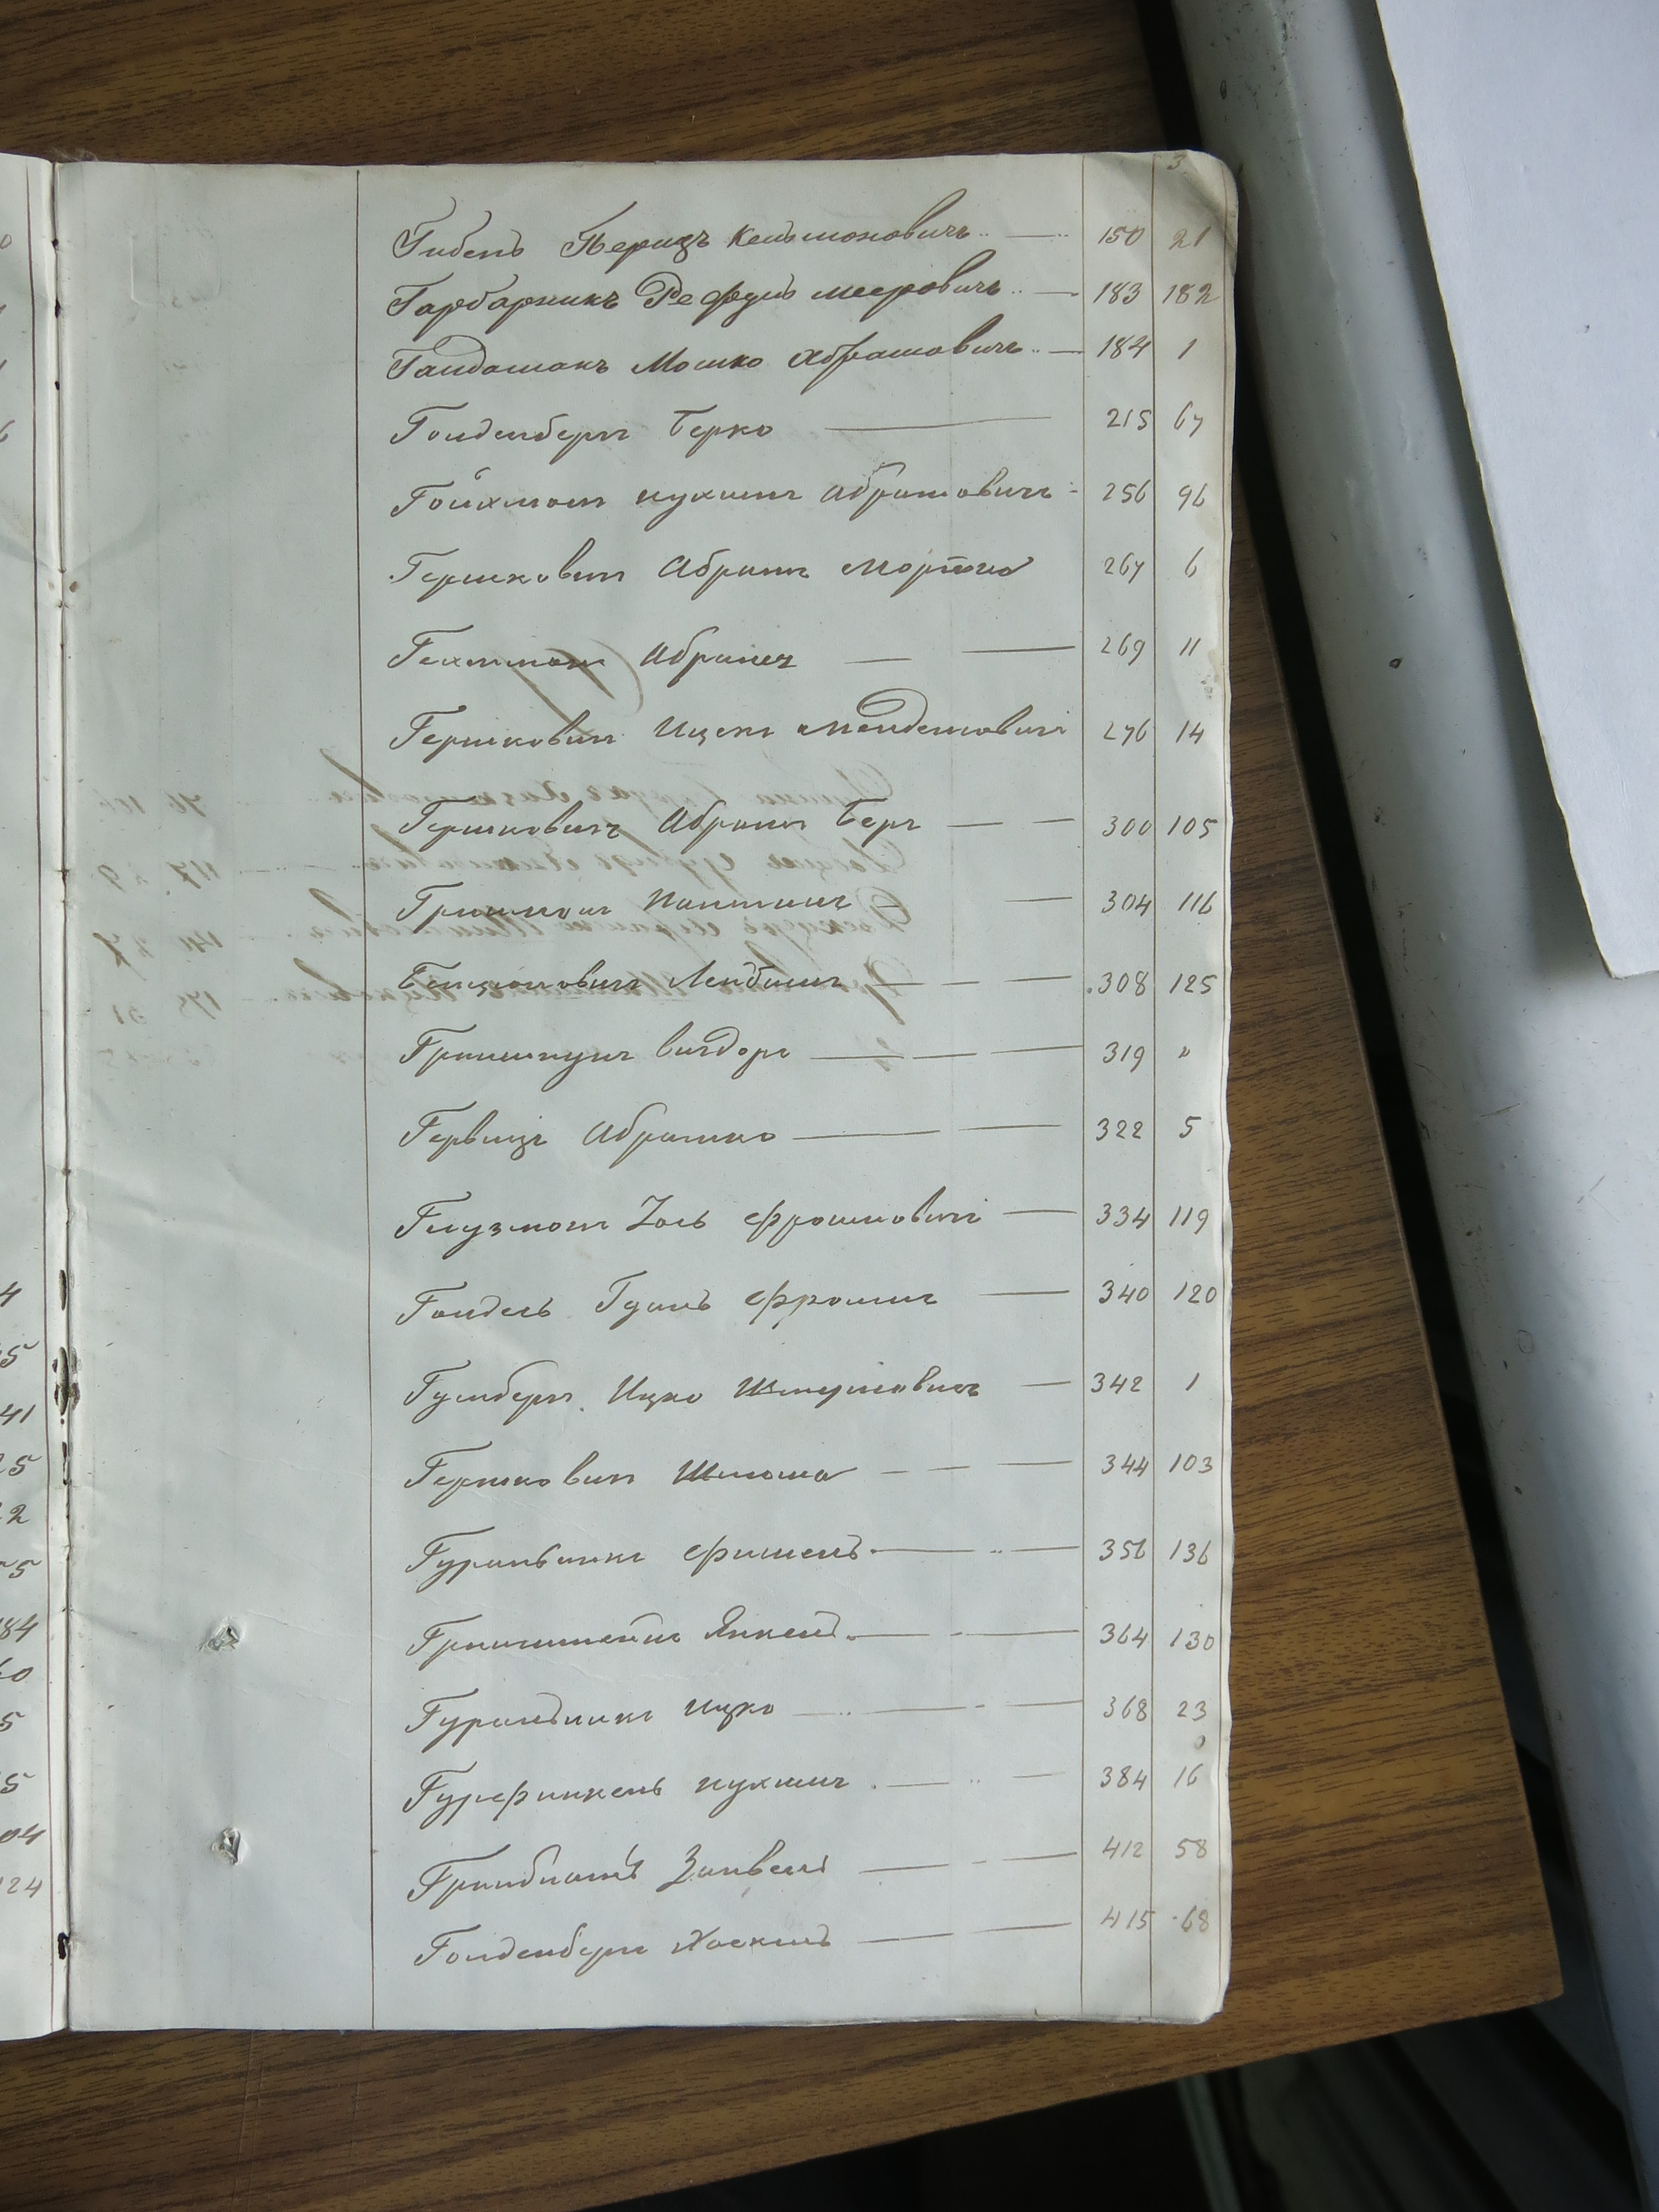 3
Гибель Перецъ Кельмоновичъ 150 21
Гарбарникъ Рефуль Мееровичъ 183 182
Гандашакъ Мошко Абрамовичъ 184 1
Гольденбергъ Берко 215 67
Гойхманъ Нухимъ Абрамовичъ 256 96
Гершковичъ Абрамъ Мортко 267 6
Гехтманъ Абрамъ 269 11
Гершковичъ Ицекъ Менделовичъ 276 14
Гершковичъ Абрамъ Беръ 300 105
Гришманъ 304 116
Бенционовичъ Лейбишъ 308 125
Гриншпунъ Вигдоръ 319 "
Гервицъ Абрамко 322 5
Глузманъ Зось Фроимовичъ 334 119
Гандель Гдаль Фроимъ 340 120
Гумбергъ Ицко Шмулиовичъ 342 1
Гершковичъ Шлиома 344 103
Гуральникъ Фишель 356 136
Гринштейнъ Янкель 364 130
Гуральникъ Ицко 368 23
Гурфинкель Нухимъ 384 16
Гринблатъ Занвель 412 58
Гольденбергъ Хаскель 415 68